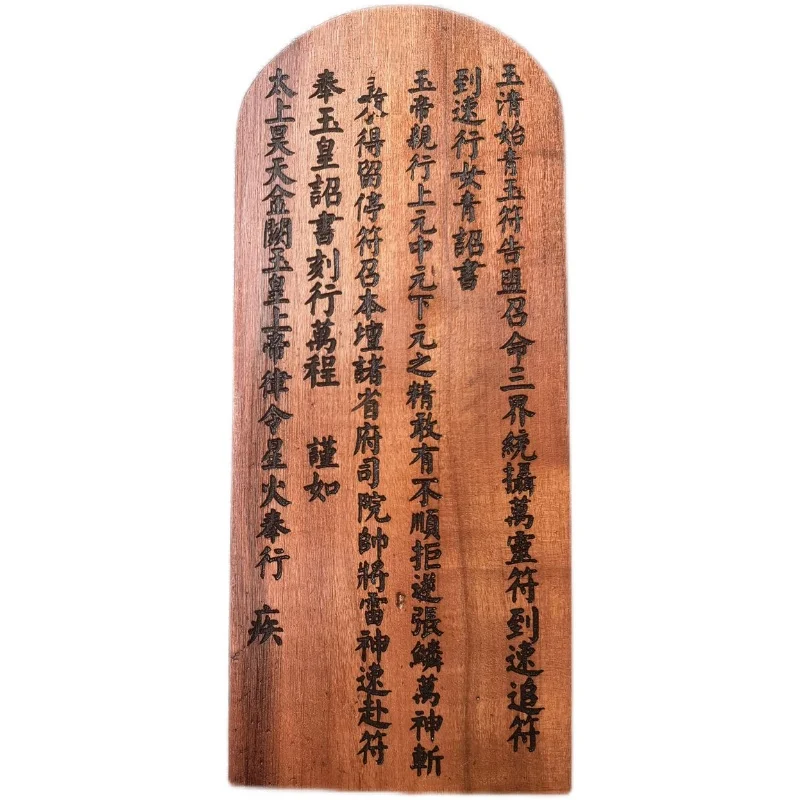 玉清始青玉符告盟召命三界統攝萬靈符到速追符
到速行女青詔書
玉帝親行上元中元下元之精敢有不順拒逆張鱗萬神斬
得留停符召本壇諸省府司院帥將雷神速赴符
奉玉皇詔書刻行萬程 謹如
太上昊天金闕玉皇上帝律令星火奉行 疾